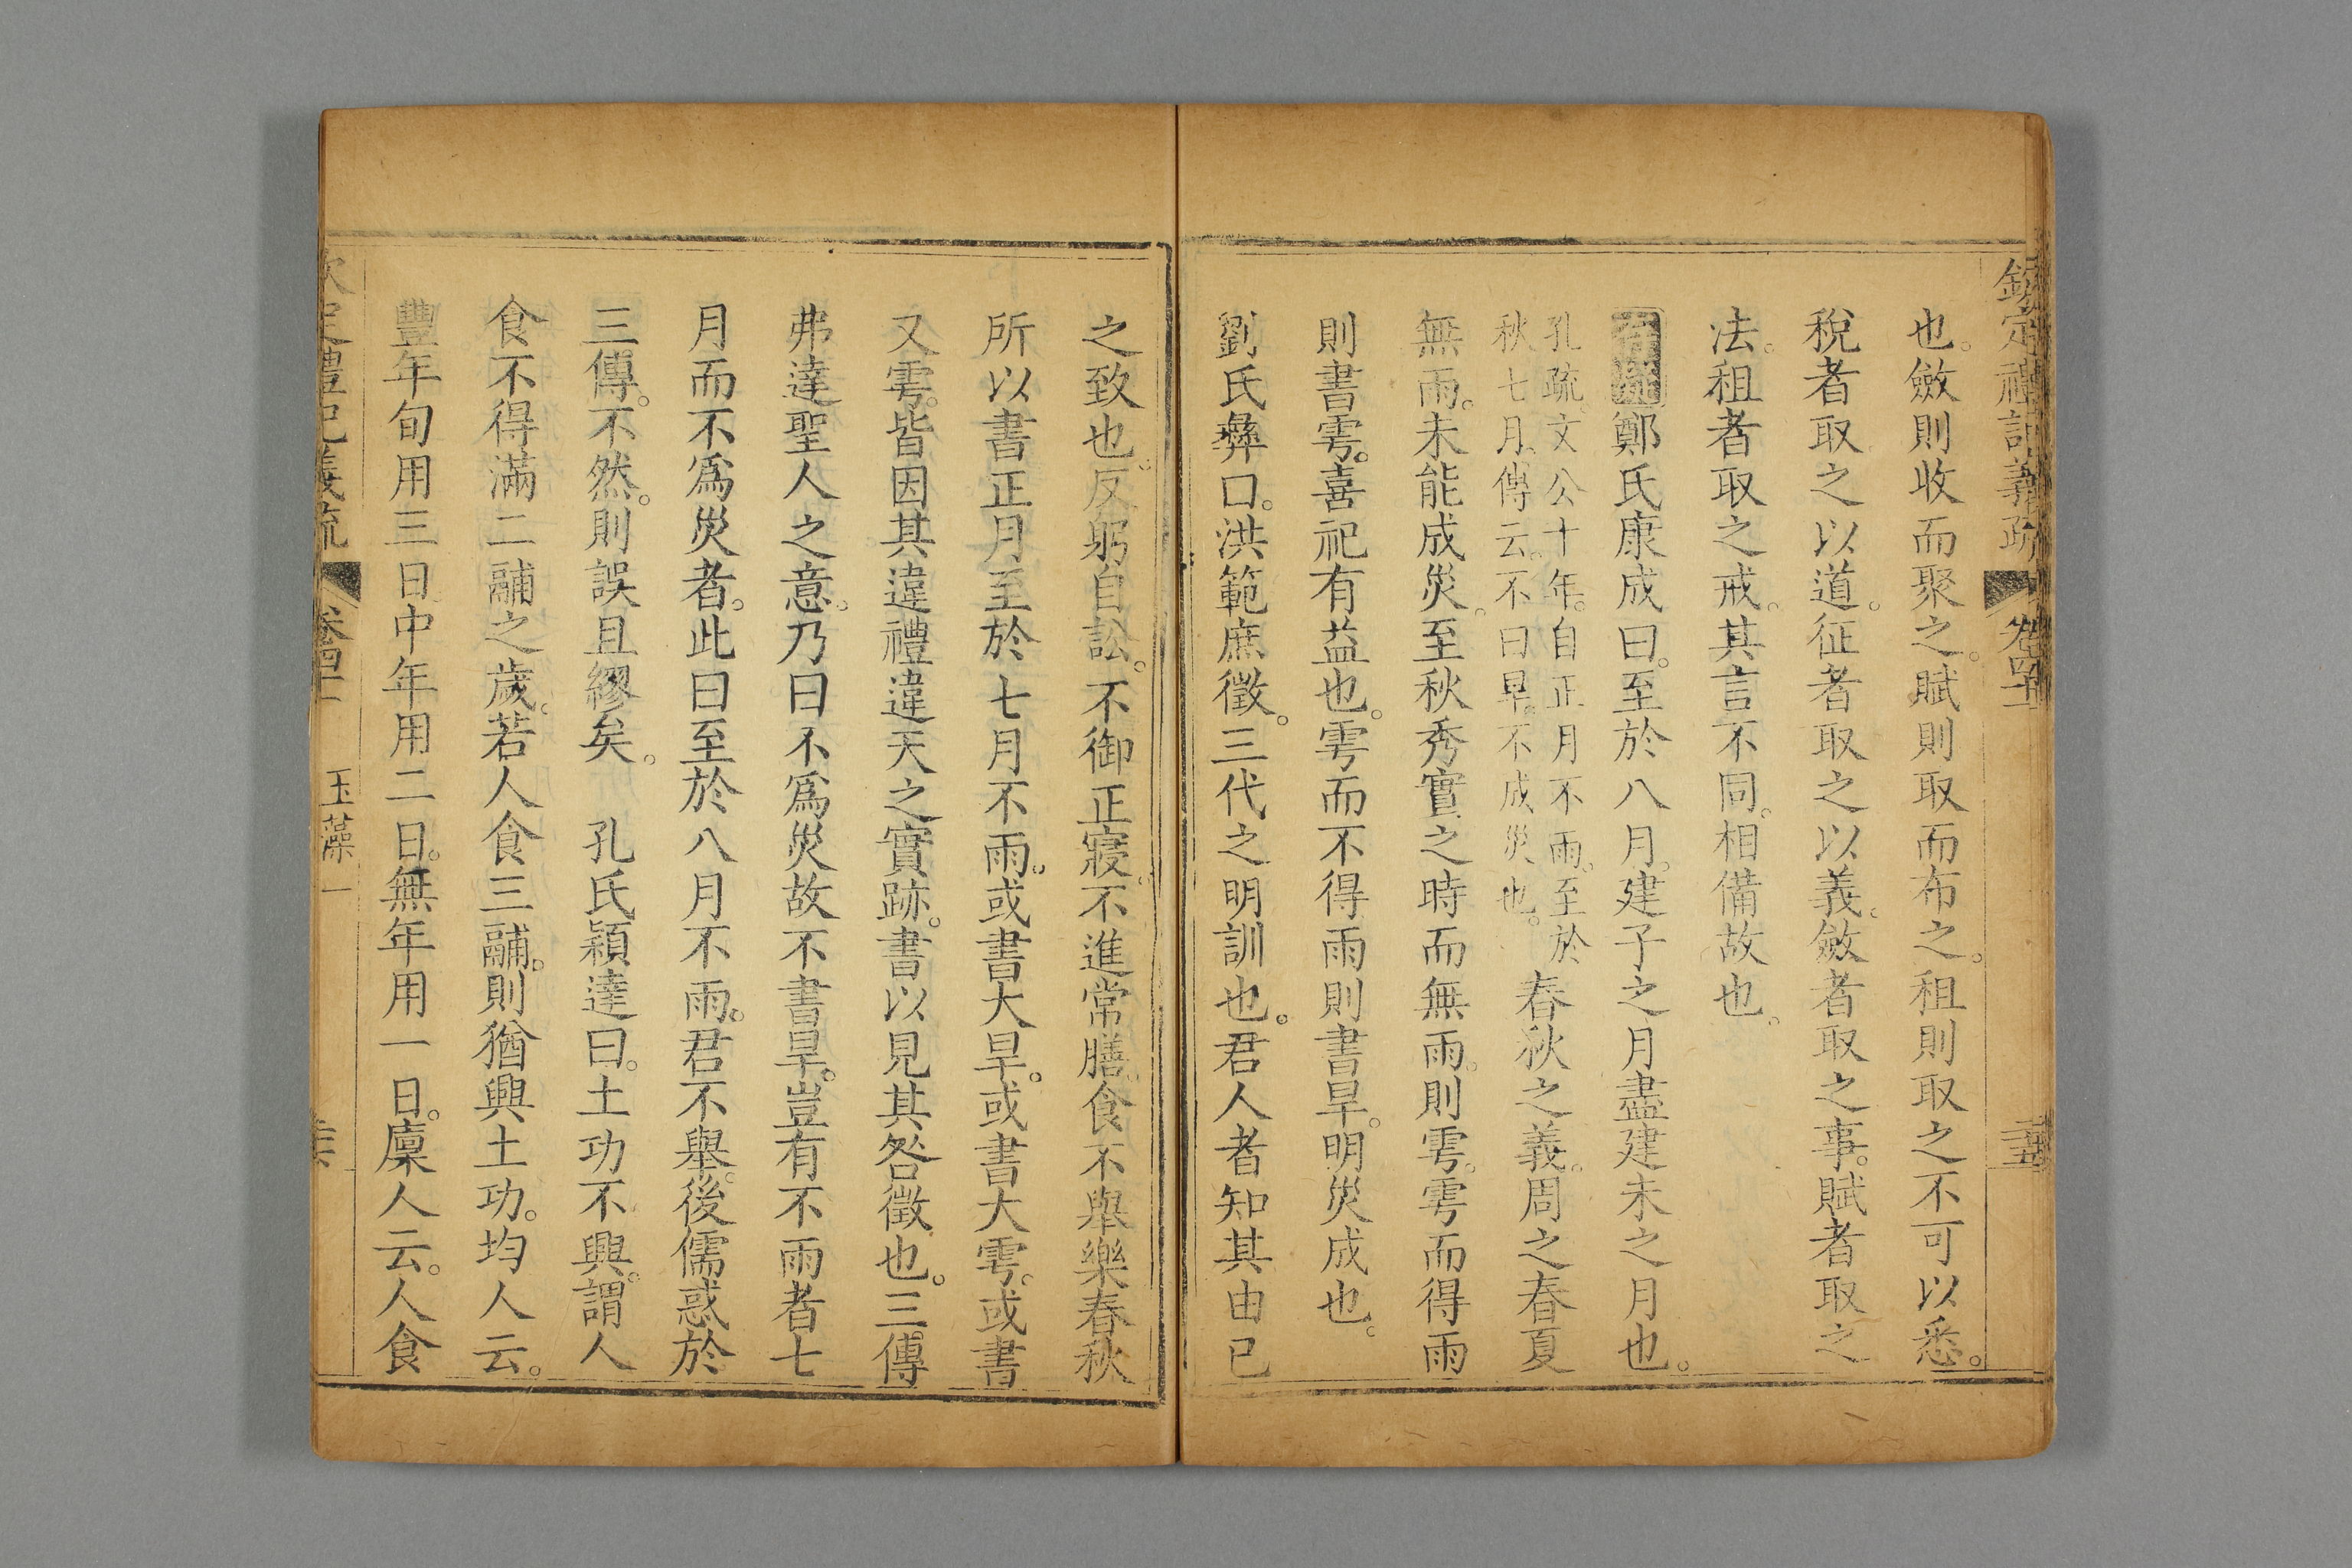 欽定禮記義疏 卷四十 玉
也。斂則收而聚之。賦則取而布之。租則取之不可以悉。
稅者取之以道。征者取之以義。斂者取之事。賦者取之
法。租者取之戒。其言不同。相備故也。
鄭氏康成曰。至於八月。建子之月盡建未之月也。
孔疏。文公十年。自正月不雨。至於
秋七月。傳云。不曰旱。不成災也。
春秋之義。周之春夏
無雨。未能成災。至秋秀實之時而無雨。則雩。雩而得雨
則書雩。喜祀有益也。雩而不得雨則書旱。明災成也。
劉氏彝曰。洪範庶徵。三代之明訓也。君人者知其由已
之致也。反躬自訟。不御正寢。不進常膳。食不舉樂春秋
所以書正月至於七月不雨。或書大旱。或書大雩。或書
又雩。皆因其違禮違天之實跡。書以見其咎徵也。三傳
弗達聖人之意。乃曰不爲災故不書旱。豈有不雨者七
月而不爲災者。此曰至於八月不雨。君不舉。後儒惑於
三傳。不然。則誤且繆矣。 孔氏穎達曰。土功不興。謂人
食不得滿二鬴之歲。若人食三鬴。則猶興土功。均人云。
豐年旬用三日中年用二日。無年用一日。廩人云。人食
定禮記義疏 卷四十 玉藻一